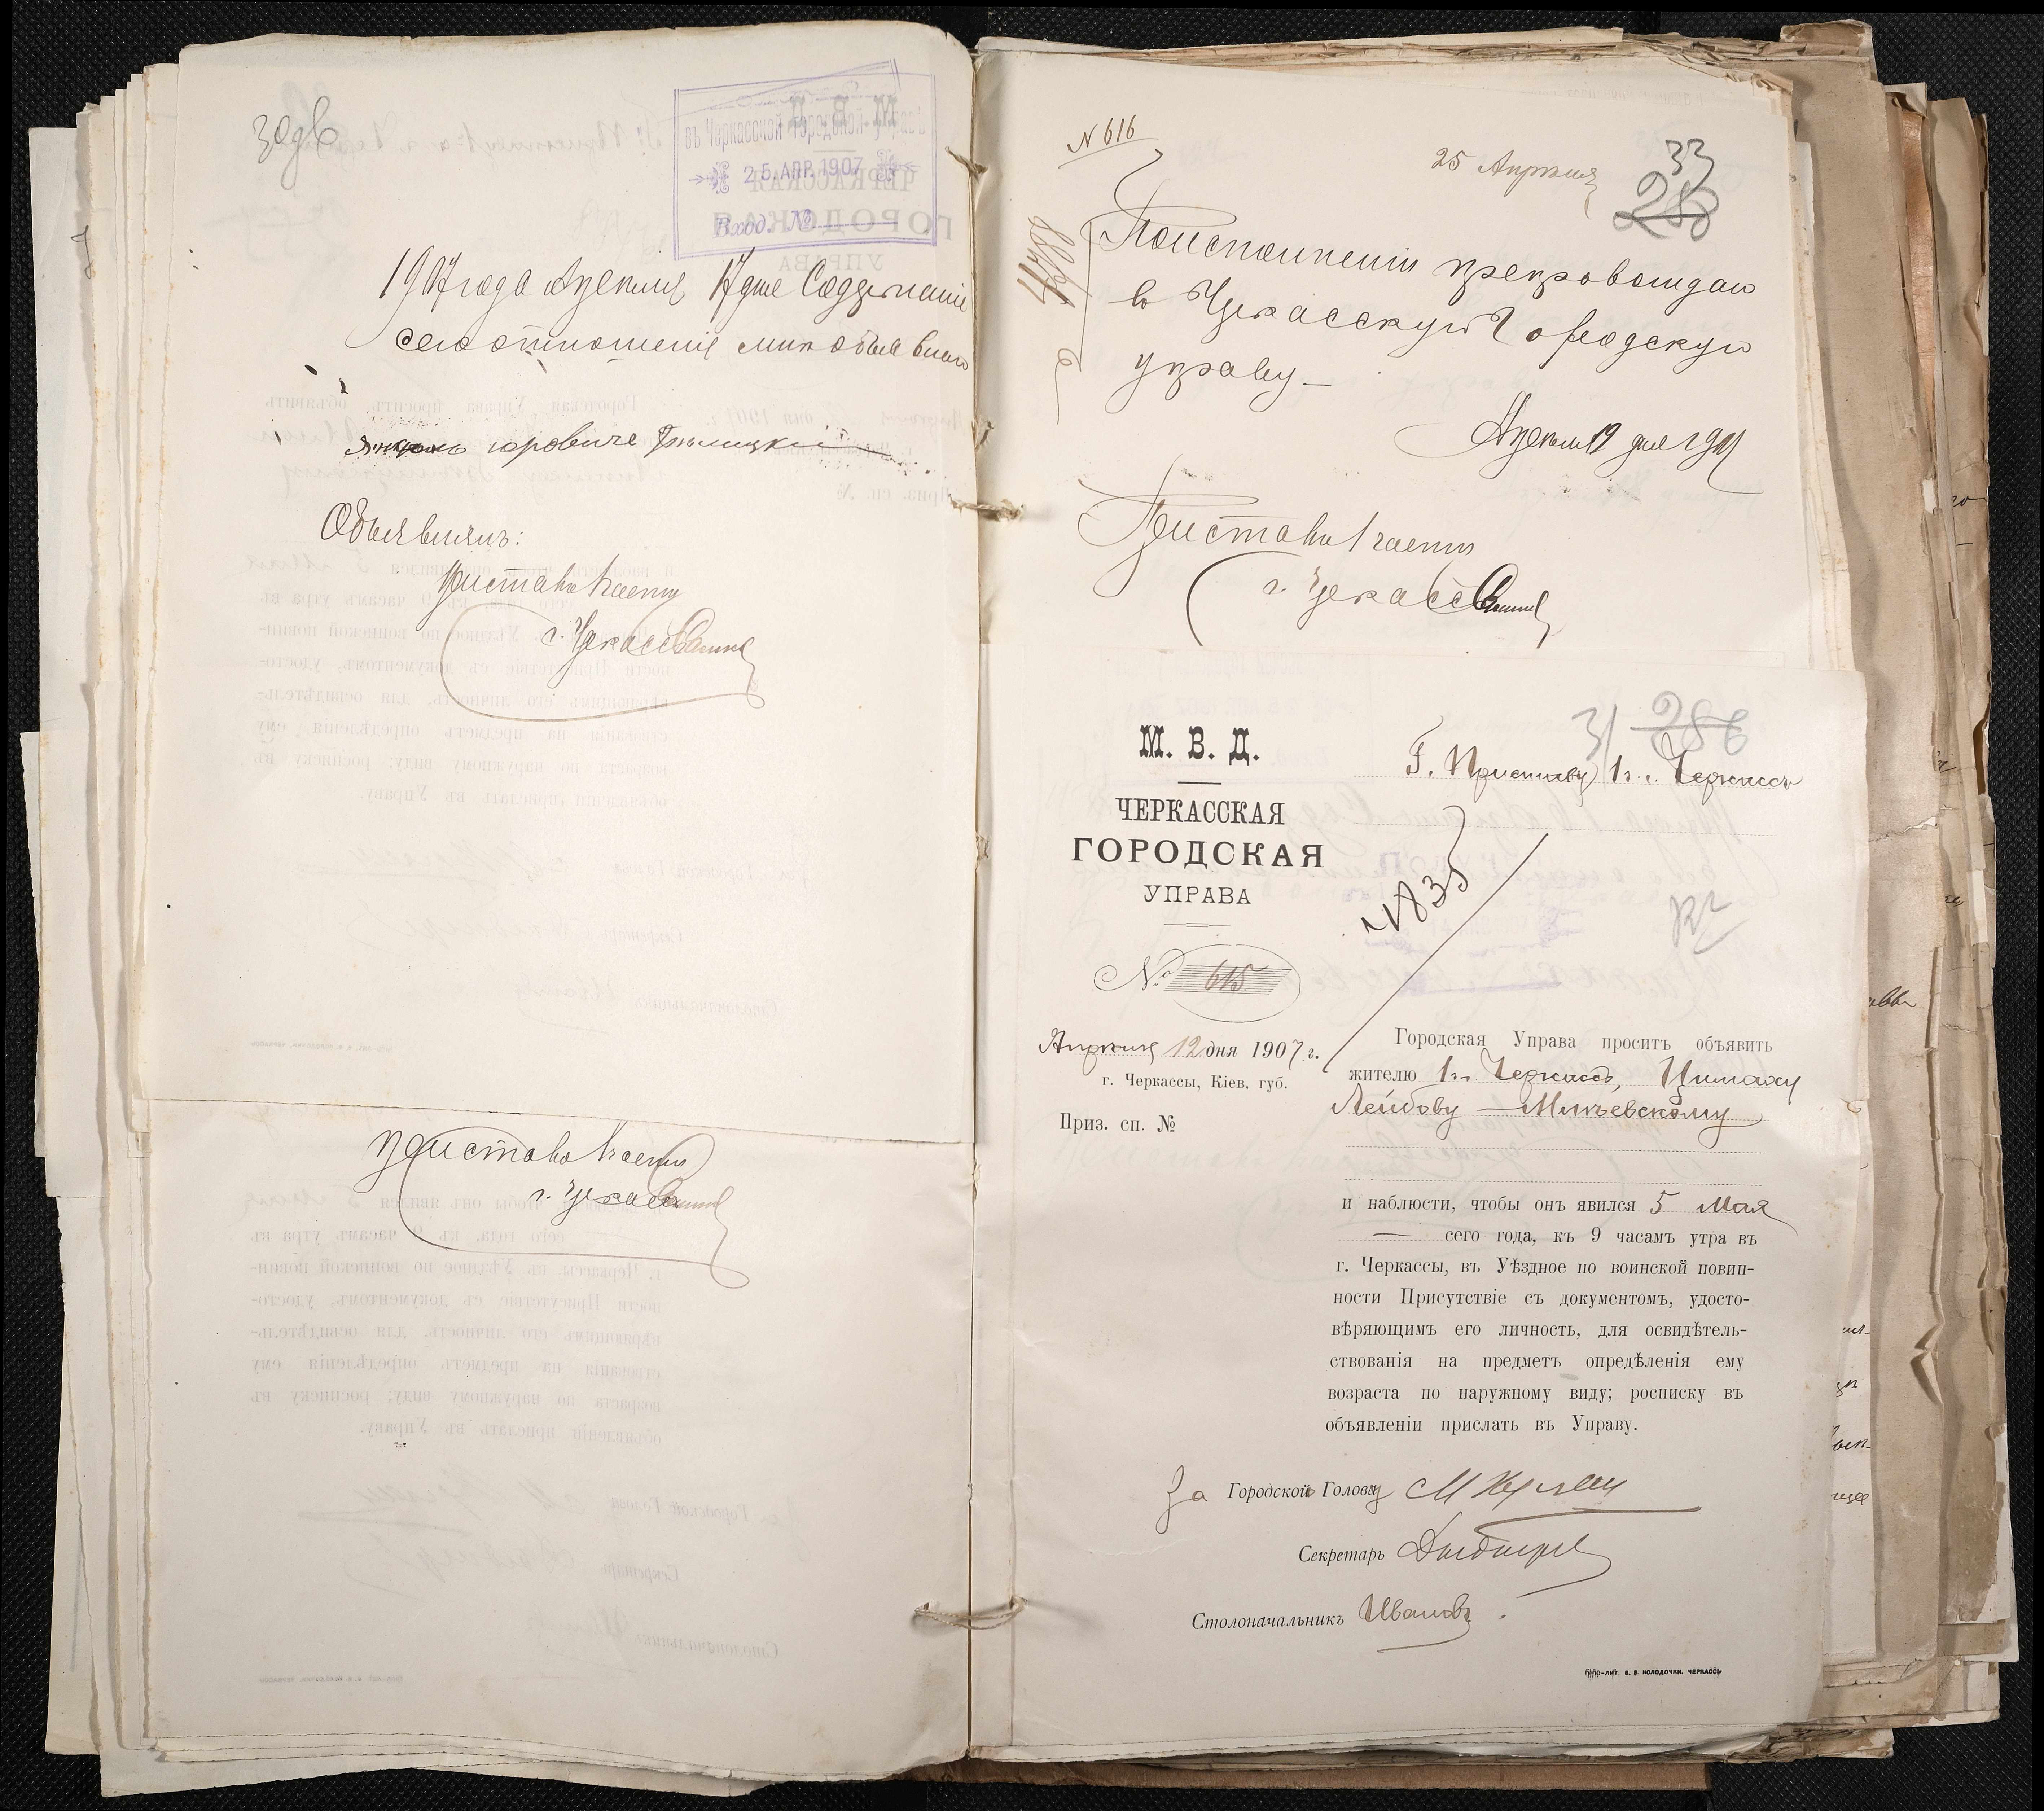 30 дв
въ Черкасской Городской Управѣ
25. АПР. 1907
Вход. №
1907 года Апреля 17 дня Содержаніе
сего отношенія мнѣ объявлено
Юровичъ
Объявилъ:
Приставъ 1 части
г. Черкассъ
приставъ 1 части
г. Черкассъ
N 616
25 Апрѣля
33
286
По исполненіи препровождаю
въ Черкасскую Городскую
управу
Апреля 19 дня 1907
Приставъ 1 части
г. Черкассъ
31 286
М. В. Д.
ЧЕРКАССКАЯ
ГОРОДСКАЯ
УПРАВА
№ 615
Апрѣля 12 дня 1907 г.
г. Черкассы, Кіев. губ.
Приз. сп. №
Г. Приставу 1 ч. г. Черкассъ
4835
Городская Управа проситъ объявить
жителю 1 ч. Черкассъ,
Лейбову
и наблюсти, чтобы онъ явился 5 Мая
— сего года, къ 9 часамъ утра въ
г. Черкассы, въ Уѣздное по воинской повин-
ности Присутствіе съ документомъ, удосто-
вѣряющимъ его личность, для освидѣтель-
ствованія на предметъ опредѣленія ему
возраста по наружному виду; росписку въ
объявленіи прислать въ Управу.
За Городской Голова
Секретарь
Столоначальникъ Ивановъ
ТИПО-ЛИТ. В. В. КОЛОДОЧКИ. ЧЕРКАССЫ